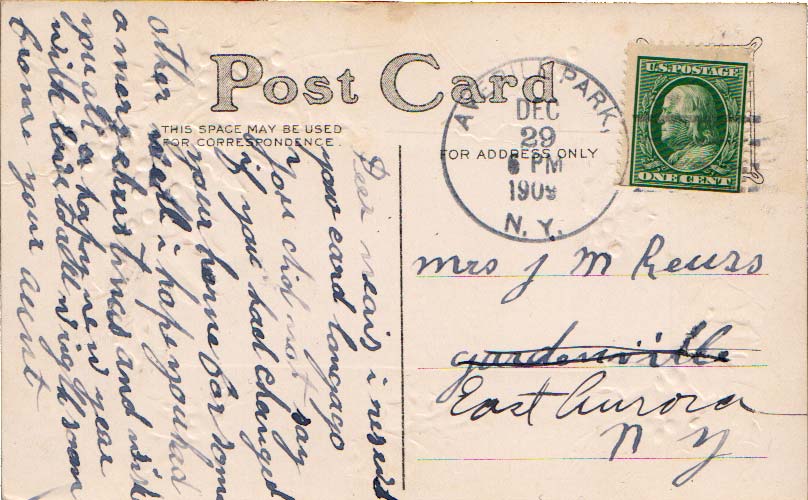 Post Card
THIS SPACE MAY BE USED
FOR CORRESPONDENCE
FOR ADDRESS ONLY
PARK,
DEC
29
PM
1909
N. Y.
U.S. POSTAGE
ONE CENT
Mrs J M Reurs
gardenville
East Aurora
N Y
Dear i
your card longago
you did not say
if you had changed
your home for some
other well i hope you had
a mery cristmas and wish
you all a hapy new year
with love to all soon
your aunt